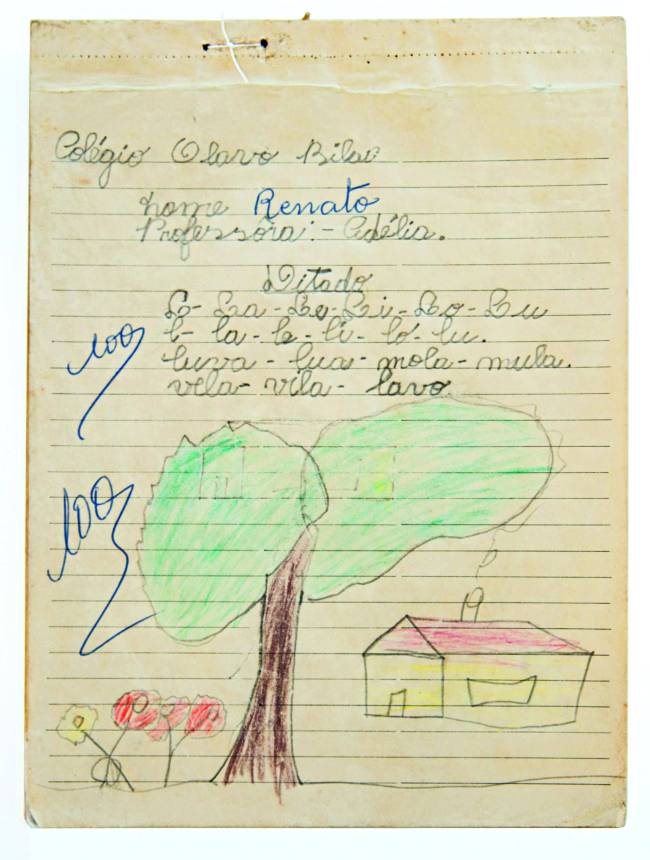 Colégio Olavo Bilac
nome Renato
Professora:- Adélia.
Ditado
L- La- Le- Li- Lo- Lu
l- la- le- li- lo- lu.
luva- lua- mola- mula.
vela- vila- lavo
100
100